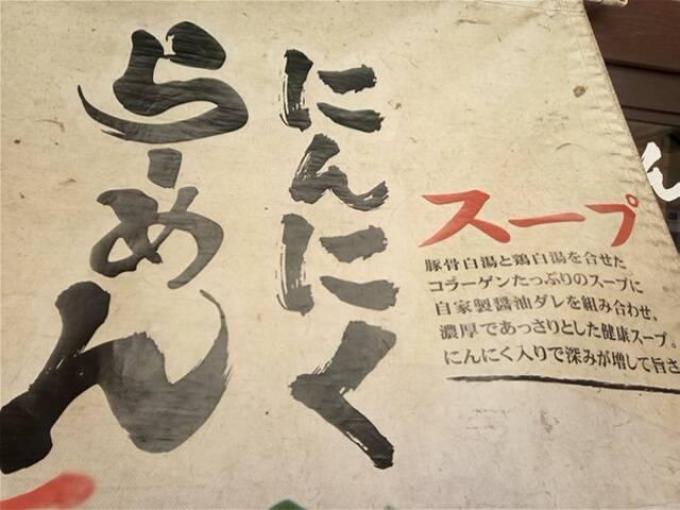 にんにく
らーめん
スープ
豚骨白湯と鶏白湯を合せた
コラーゲンたっぷりのスープに
自家製醤油ダレを組み合わせ、
濃厚であっさりとした健康スープ。
にんにく入りで深みが増して旨さ
ん